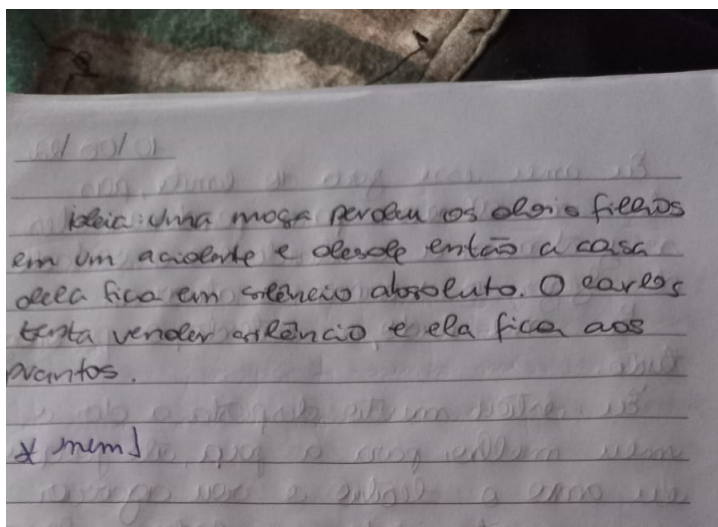 ideia: uma moça perdeu os dois filhos
em um acidente e desde então a casa
dela fica em silêncio absoluto. O Carlos
tenta vender silêncio e ela fica aos
prantos.